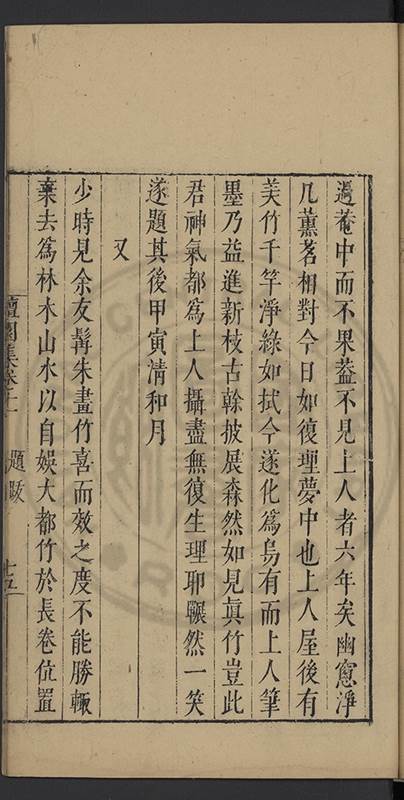 過菴中而不果葢不見上人者六年矣幽窻淨
几薰茗相對今日如復理夢中也上人屋後有
美竹千竿淨綠如拭今遂化爲烏有而上人筆
墨乃益進新枝古榦披展森然如見眞竹豈此
君神氣都爲上人攝盡無復生理耶囅然一笑
遂題其後甲寅清和月
又
少時見余友髯朱畫竹喜而效之度不能勝輙
棄去爲林木山水以自娛大都竹於長卷位置
檀園集卷十二
題跋
十五